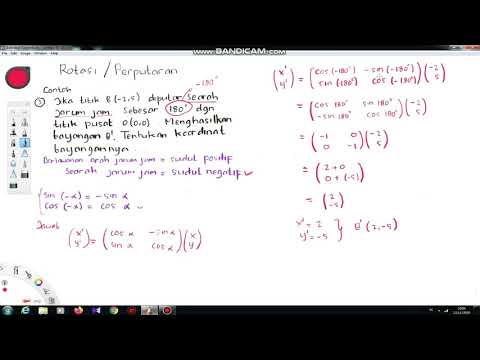 WWW.BANDICAM.COM
Rotasi / Perputaran
-180°
Contoh
③ Jika titik B(-2,5) diputar searah
jarum jam. Sebesar 180° dgn
titik pusat O(0,0). Menghasilkan
bayangan B'. Tentukan koordinat
bayangannya
Berlawanan arah jarum jam = sudut positif
Searah jarum jam = sudut negatif ✓
sin (-α) = -sin α
cos (-α) = cos α
Jawab
(x' y') = (cos α -sin α sin α cos α)(x y)
(x' y') = (cos(-180°) -sin(-180°) sin(-180°) cos(-180°))(-2 5)
= (cos 180° sin 180° -sin 180° cos 180°)(-2 5)
= (-1 0 0 -1)(-2 5)
= (2+0 0+(-5))
= (2 -5)
x' = 2
y' = -5 } B' (2,-5)